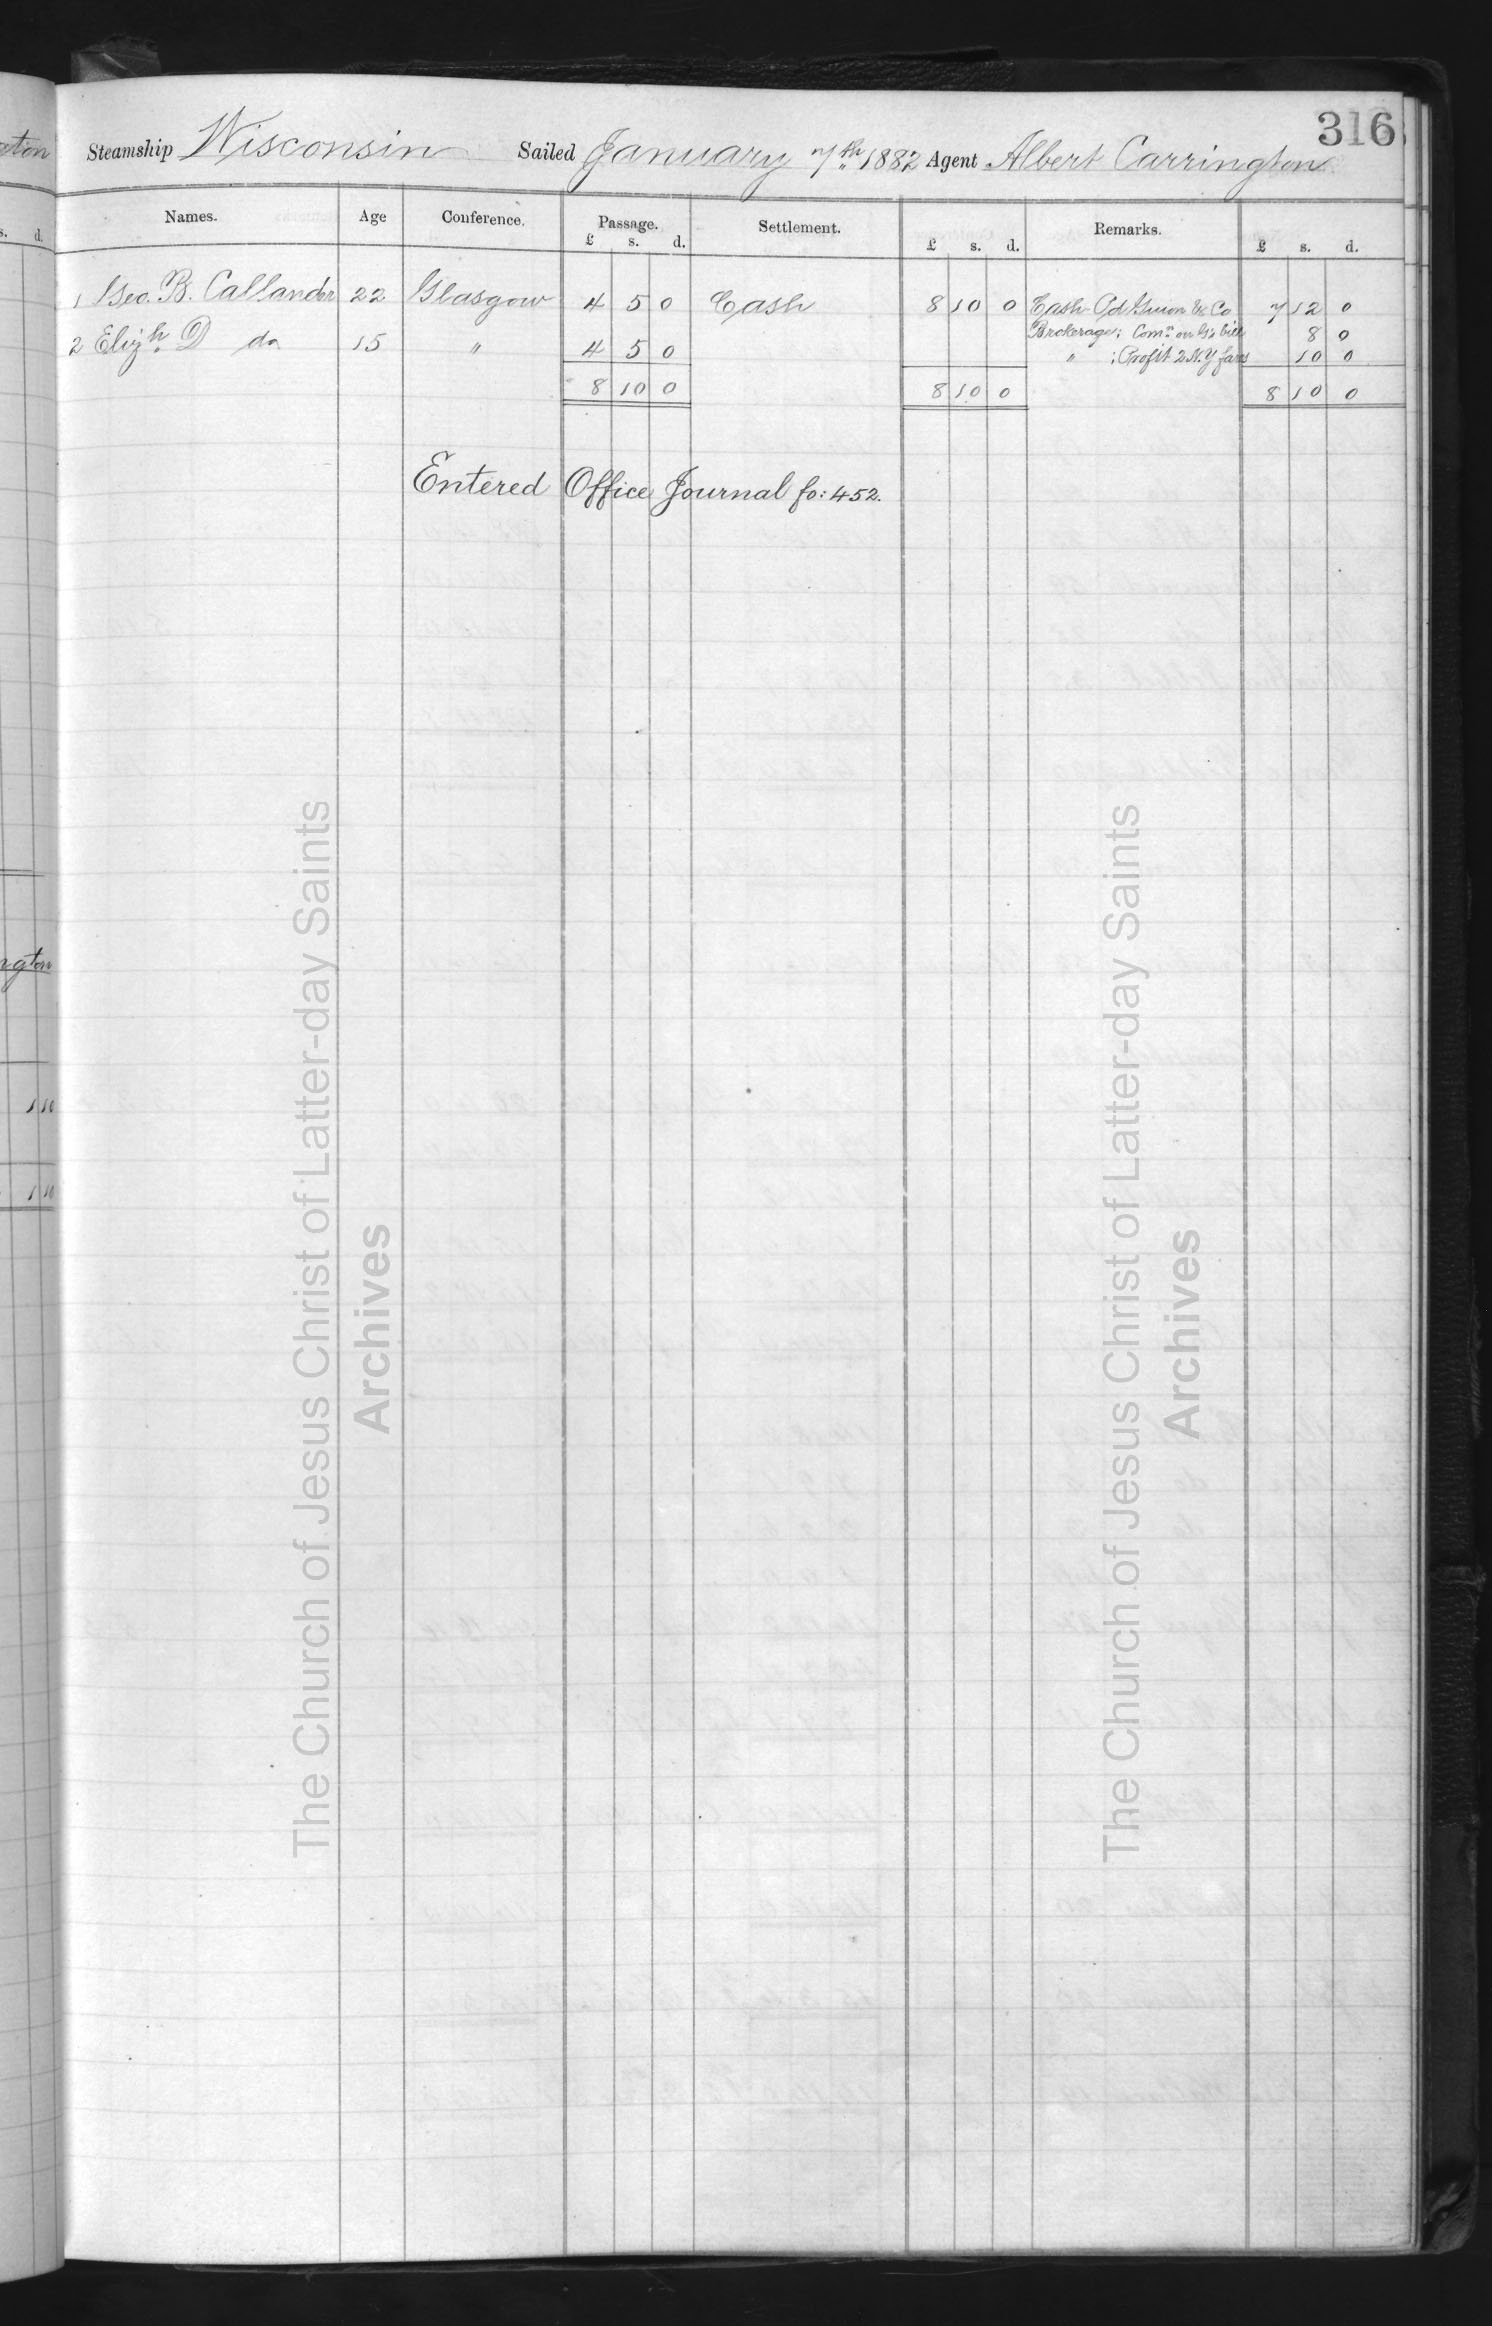 316
Steamship Wisconsin Sailed January 7th 1882 Agent Albert Carrington
Names. Age Conference. Passage. £ s. d. Settlement. £ s. d. Remarks. £ s. d.
1 Geo. B. Callander 22 Glasgow 4 5 0 Cash 8 10 0 Cash Pd Guion & Co 7 12 0
Brokerage; Comn. on G's bill 8 0
2 Elizh. D do 15 " 4 5 0 " ; Profit 2 N.Y fares 10 0
8 10 0 8 10 0 8 10 0
Entered Office Journal fo: 452.
eton
s. d.
ngton
1 10
1 10
The Church of Jesus Christ of Latter-day Saints
Archives
The Church of Jesus Christ of Latter-day Saints
Archives